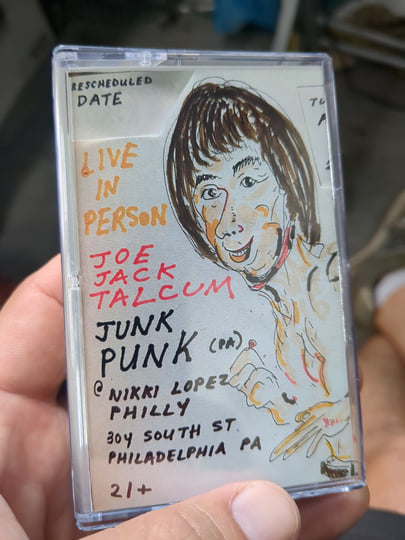 RESCHEDULED
DATE
TU
LIVE
IN
PERSON
JOE
JACK
TALCUM
JUNK
PUNK (PA)
@ NIKKI LOPEZ
PHILLY
304 SOUTH ST.
PHILADELPHIA PA
21+